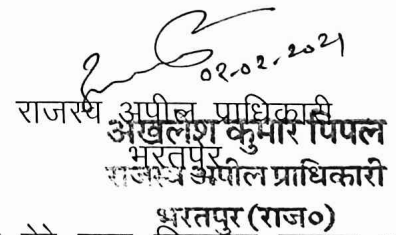 02-02-2021
राजस्व अपील प्राधिकारी
अखलेश कुमार पिपल
भरतपुर
राजस्व अपील प्राधिकारी
भरतपुर (राज०)